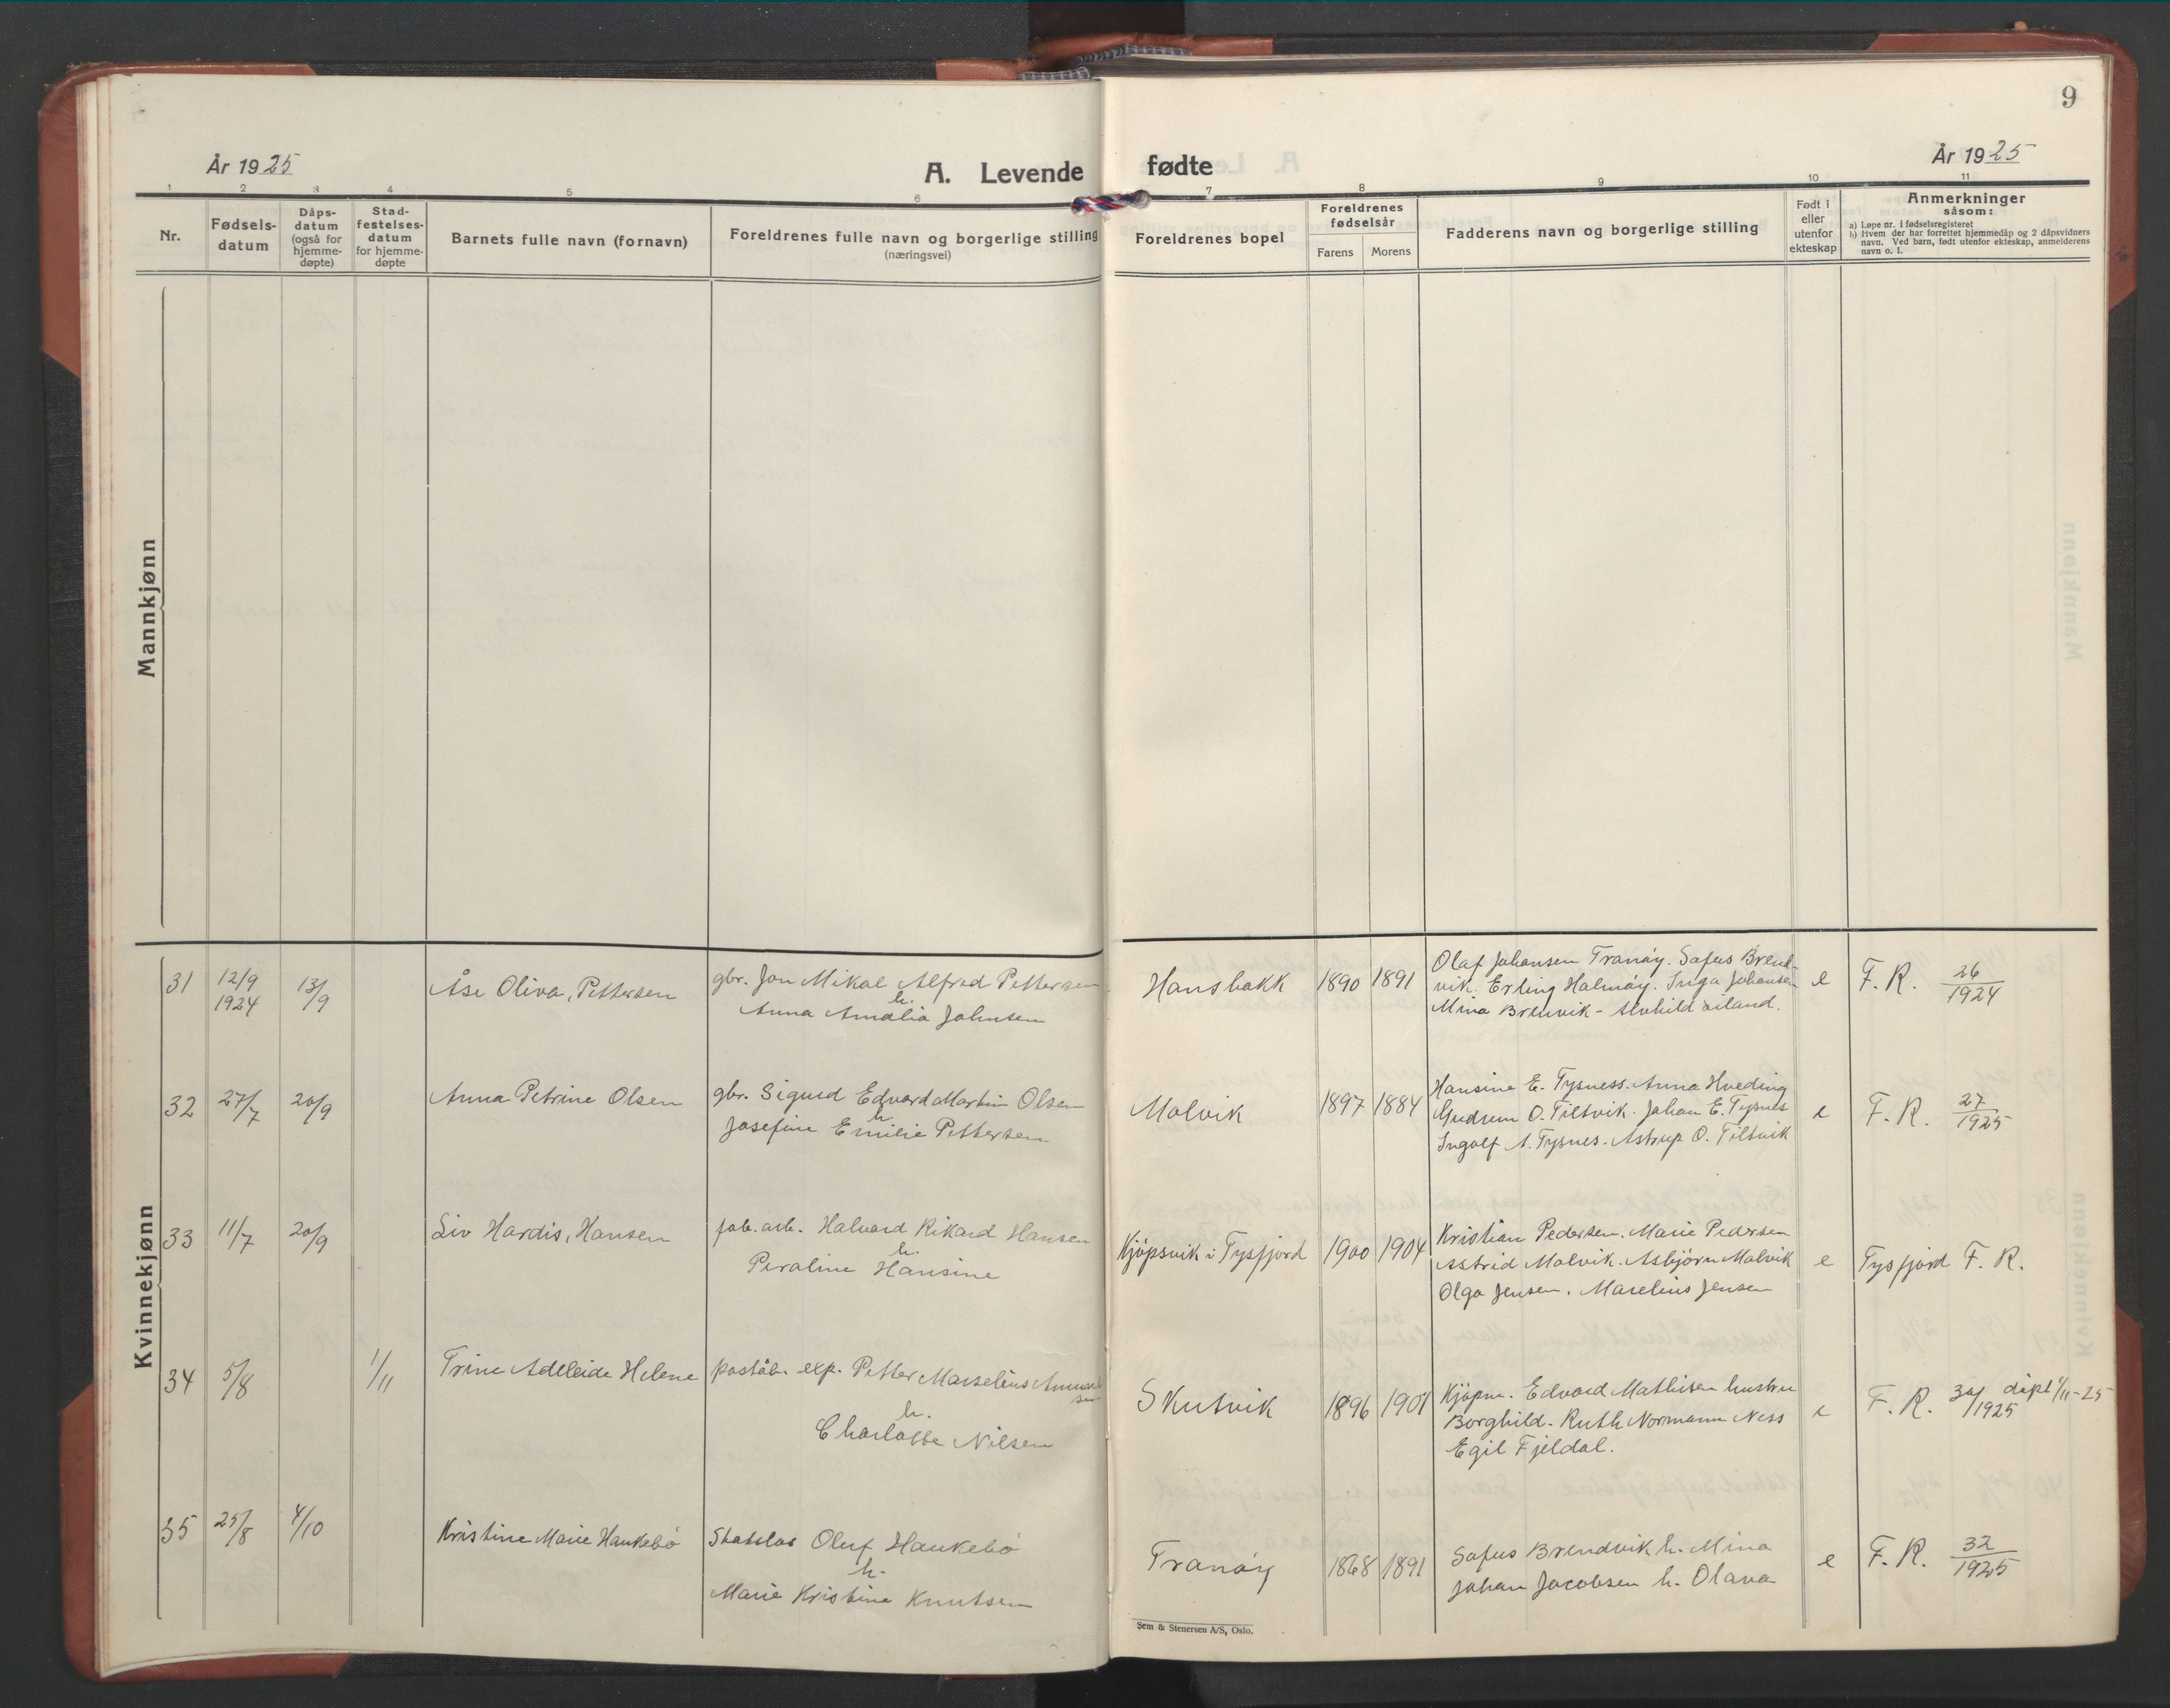 9
År 1925
A. Levende fødte
År 1925
1 2 3 4 5 6 7 8 9 10 11
Nr.
Fødsels-
datum
Dåps-
datum
(også for
hjemme-
døpte)
Stad-
festelses-
datum
for hjemme-
døpte
Barnets fulle navn (fornavn)
Foreldrenes fulle navn og borgerlige stilling
(næringsvei)
Foreldrenes bopel
Foreldrenes
fødselsår
Farens Morens
Fadderens navn og borgerlige stilling
Født i
eller
utenfor
ekteskap
Anmerkninger
såsom:
a) Løpe nr. i fødselsregisteret
b) Hvem der har forrettet hjemmedåp og 2 dåpsvidners
navn. Ved barn, født utenfor ekteskap, anmelderens
navn o. l.
Mannkjønn
Kvinnekjønn
31
12/9
1924
13/9
Åse Oliva, Pettersen
gbr. Jon Mikal Alfred Pettersen
h.
Anna Amalia Johnsen
Hansbakk
1890
1891
Olaf Johansen Tranøy. Safus Brend-
vik. Erling Halmøy. Inga Johansen
Mina Brenvik -
e
F. R. 26/1924
32
27/7
20/9
Anna Petrine Olsen
gbr. Sigurd Edvard Martin Olsen
h.
Josefine Emilie Pettersen
Malvik
1897
1884
Hansine E. Tysness. Anna Hveding
Gudrun O. Tiltvik. Johan E. Tysnes
Ingolf A. Tysnes. Astrup O. Tiltvik
e
F. R. 27/1925
33
11/7
20/9
Liv Hardis, Hansen
fab. arb. Halvard Rikard Hansen
h.
Peraline Hansine
Kjøpsvik i Tysfjord
1900
1904
Kristian Pedersen. Marie Pedersen
Astrid Malvik. Asbjørn Malvik
Olga Jensen. Marelius Jensen
e
Tysfjord F. R.
34
5/8
1/11
Trine Adeleide Helene
poståb. exp. Petter Marselius
h.
Charlotte Nilsen
Skutvik
1896
1901
Kjøpm. Edvard Mathisen hustru
Borghild. Ruth Normann Ness
Egil Fjeldal.
e
F. R. 30/1925 døpt 1/11-25
35
25/8
4/10
Kristine Marie Haukebø
Statslos Oluf Haukebø
h.
Marie Kristine Knutsen
Tranøy
1868
1891
Safus Brendvik h. Mina
Johan Jacobsen h. Olava
e
F. R. 32/1925
Sem & Stenersen A/S, Oslo.